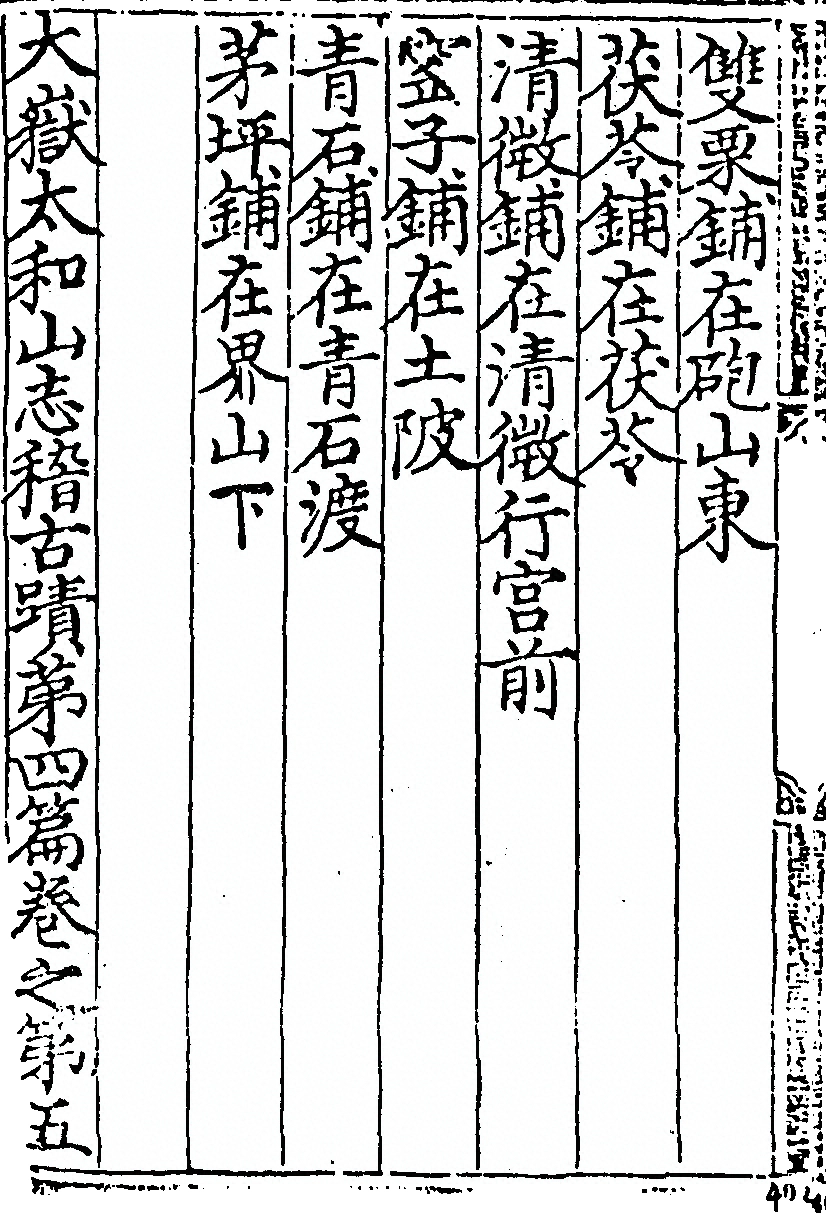 雙栗鋪在砲山東
茯苓鋪在茯苓
清微鋪在清微行宮前
子鋪在土陂
青石鋪在青石渡
茅坪鋪在界山下
大嶽太和山志稽古蹟第四篇卷之第五